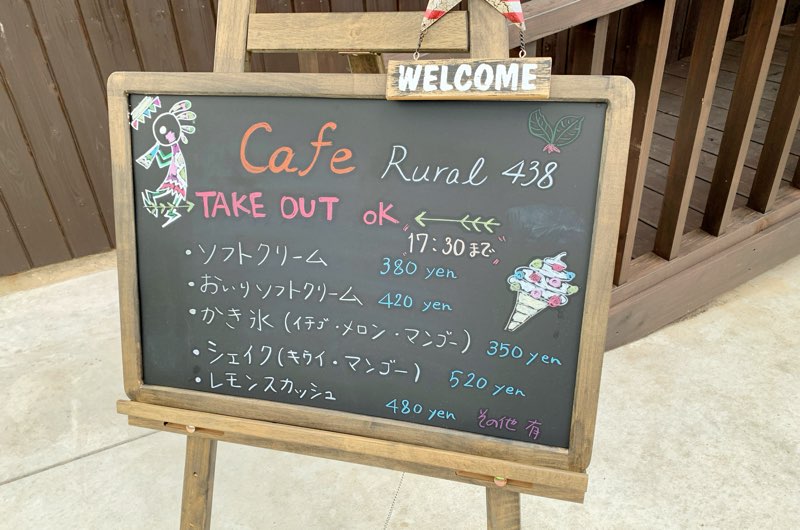 WELCOME
Cafe Rural 438
TAKE OUT OK
17:30まで
・ソフトクリーム 380 yen
・おいりソフトクリーム 420 yen
・かき氷(イチゴ・メロン・マンゴー) 350 yen
・シェイク(キウイ・マンゴー) 520 yen
・レモンスカッシュ 480 yen
その他 有